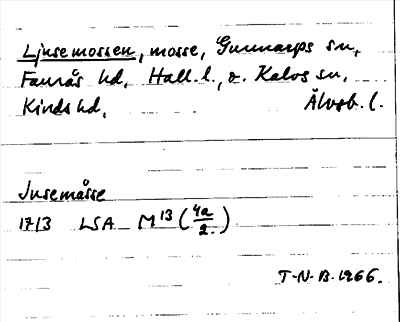 Ljusemossen, mosse, Gunnarps sn,
Faurås hd, Hall. l., o. Kalvs sn,
Kinds hd, Älvsb. l.
Jusemåsse
1713 LSA M 13 (4a/2.)
T-N-B-1966.